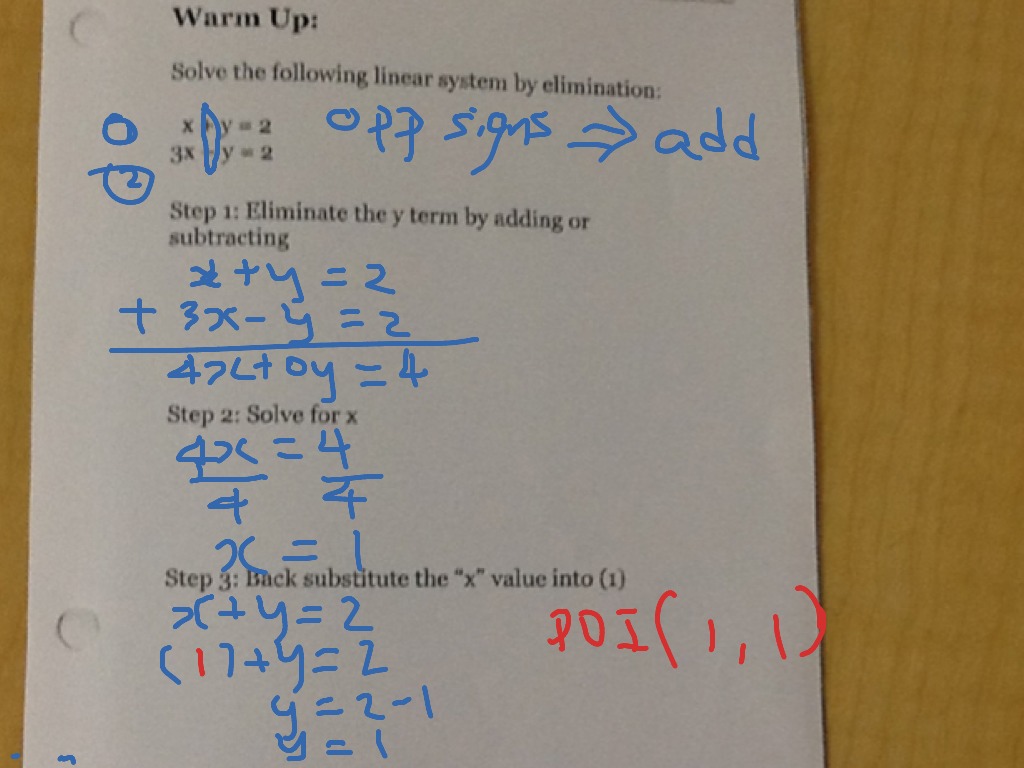 Warm Up:
Solve the following linear system by elimination:
① x + y = 2 opp signs ⇒ add
② 3x - y = 2
Step 1: Eliminate the y term by adding or
subtracting
x + y = 2
+ 3x - y = 2
4x + 0y = 4
Step 2: Solve for x
4x = 4
4 4
x = 1
Step 3: Back substitute the "x" value into (1)
x + y = 2
(1) + y = 2
POI(1, 1)
y = 2 - 1
y = 1